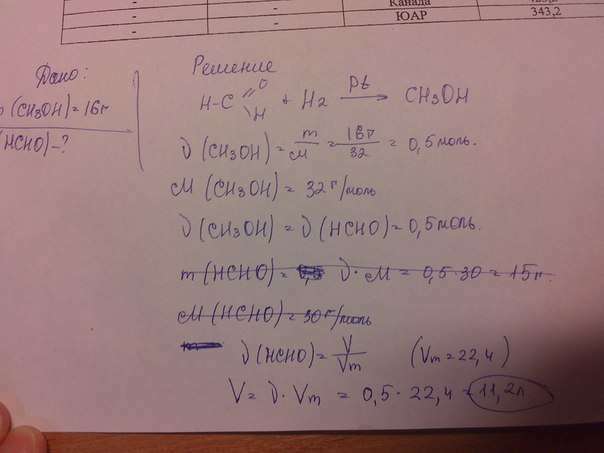 Канада
ЮАР 343,2
Дано:
(CH3OH)=16г
(HCHO)-?
Решение
H-C O H + H2 Pt → CH3OH
ν(CH3OH)= m/M = 16г/32 = 0,5моль.
M(CH3OH)= 32г/моль
ν(CH3OH)= ν(HCHO)= 0,5моль.
m(HCHO)= ν·M = 0,5·30 = 15г.
M(HCHO)= 30г/моль
ν(HCHO)= V/Vm (Vm=22,4)
V= ν·Vm = 0,5·22,4 = 11,2л